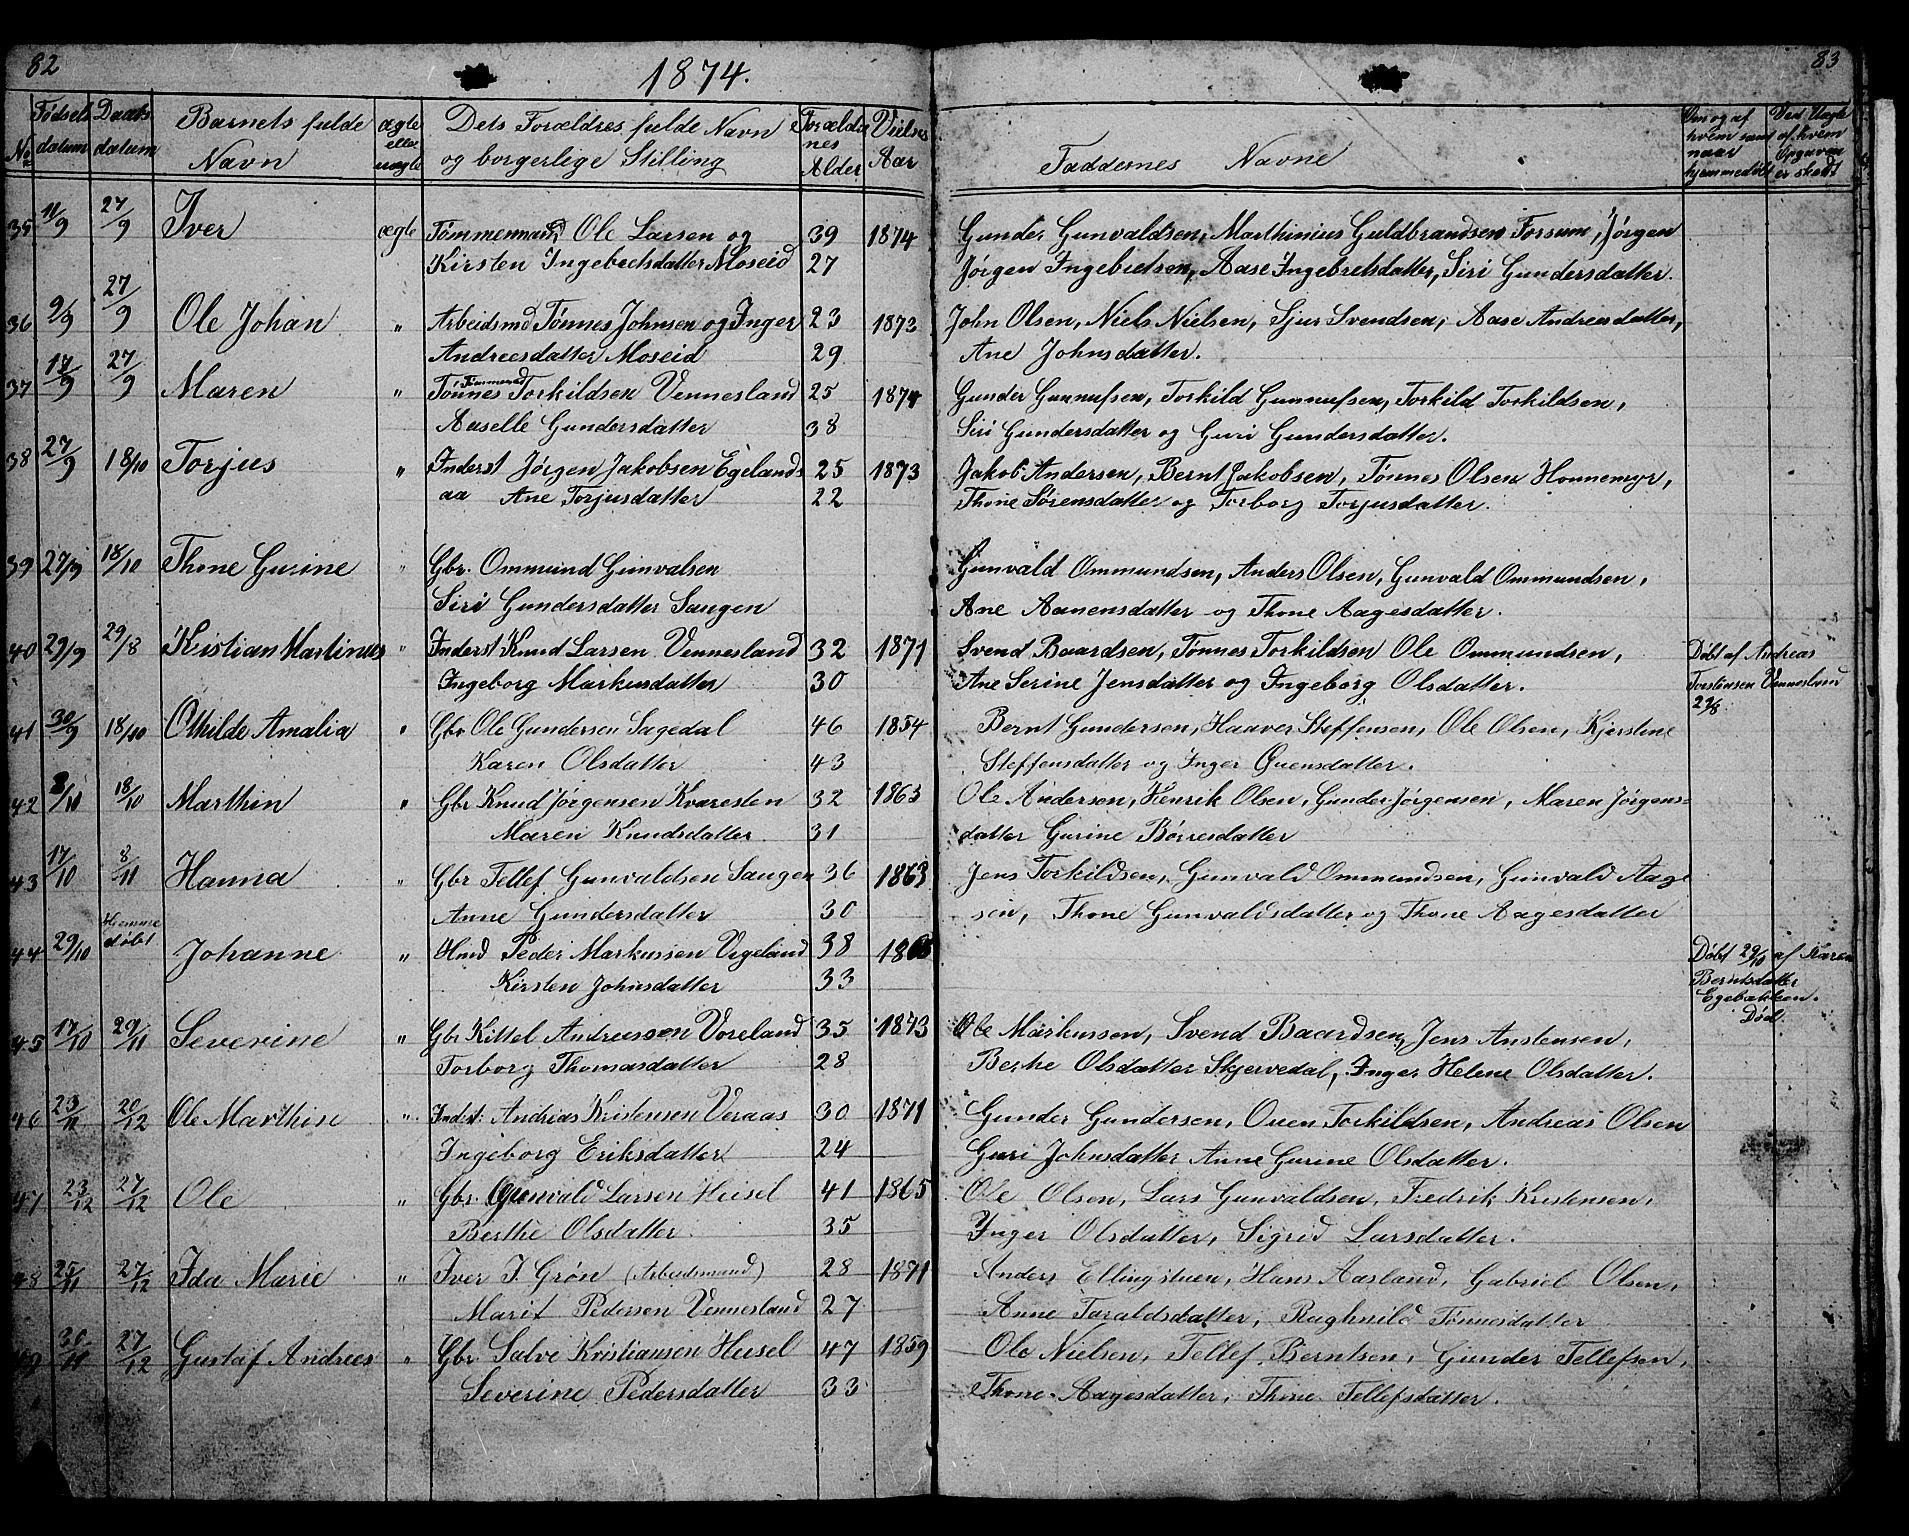 82
1874.
83
No
Fødsels datum
Daabs datum
Barnets fulde Navn
ægte eller uægte
Dets Forældres fulde Navn og borgerlige Stilling
Forældrenes Alder
Vielses Aar
Faddernes Navne
Om og af hvem samt naar hjemmedøbt
Ved Uægte af hvem Opgaven er skedt
35 11/9 27/9 Iver ægte Tømmermand Ole Larsen og 39 1874 Gunder Gunvaldsen, Marthinius Guldbrandsen Forsum, Jørgen
Kirsten Ingebretsdatter Moseid 27 Jørgen Ingebretsen, Aase Ingebretsdatter, Siri Gundersdatter.
36 9/9 27/9 Ole Johan " Arbeidsmd Tønnes Johnsen og Inger 23 1873 John Olsen, Niels Nielsen, Sjur Svendsen, Aase Andreasdatter,
Andreesdatter Moseid 29 Ane Johnsdatter.
37 17/9 27/9 Maren " Tømmermd Tønnes Torkildsen Vennesland 25 1874 Gunder Gunnufsen, Torkild Gunnufsen, Torkild Torkildsen,
Aaselle Gundersdatter 38 Siri Gundersdatter og Guri Gundersdatter.
38 27/9 18/10 Torjus " Inderst Jørgen Jakobsen Egelands 25 1873 Jakob Andersen, Bernt Jakobsen, Tønnes Olsen Honnemyr,
aa Ane Torjusdatter 22 Thone Sørensdatter og Torborg Torjusdatter.
39 27/9 18/10 Thone Gurine " Gbr. Ommund Gunvalsen Gunvald Ommundsen, Anders Olsen, Gunvald Ommundsen,
Siri Gundersdatter Saugen Ane Aanensdatter og Thone Aagesdatter.
40 29/9 29/8 Kristian Martinus " Inderst Knud Larsen Vennesland 32 1871 Svend Baardsen, Tønnes Torkildsen Ole Ommundsen, Døbt af Andreas
Ingeborg Markusdatter 30 Ane Serine Jensdatter og Ingeborg Olsdatter. Torstensen Vennesland
29/8
41 30/9 18/10 Othilde Amalia " Gbr Ole Gundersen Sagedal 46 1854 Bernt Gundersen, Haaver Steffensen, Ole Olsen, Kjerstene
Karen Olsdatter 43 Steffensdatter og Inger Quensdatter.
42 8/11 18/10 Marthin " Gbr Knud Jørgensen Kvaresten 32 1863 Ole Andersen, Henrik Olsen, Gunder Jørgensen, Maren Jørgens=
Maren Knudsdatter 31 datter Gurine Børresdatter
43 17/10 8/11 Hanna " Gbr Tellef Gunvaldsen Saugen 36 1863 Jens Torkildsen, Gunvald Ommundsen, Gunvald Aage
Anne Gundersdatter 30 sen, Thone Gunvaldsdatter og Thone Aagesdatter
44 29/10 Hjemmedøbt Johanne " Hmd Peder Markussen Vigeland 38 Døbt 29/10 af Karen
Kirsten Johnsdatter 33 Berntsdatter
Egebakken.
Død.
45 17/10 29/11 Severine " Gbr Kittel Andreassen Voreland 35 1873 Ole Markussen, Svend Baardsen, Jens Anstensen,
Torborg Thomasdatter 28 Berthe Olsdatter Skjervedal, Inger Helene Olsdatter.
46 23/11 20/12 Ole Marthin " Inderst: Andreas Kristensen Veraas 30 1871 Gunder Gundersen, Ouen Torkildsen, Andreas Olsen
Ingeborg Eriksdatter 24 Guri Johnsdatter Anne Gurine Olsdatter.
47 23/12 27/12 Ole " Gbr. Gunvald Larsen Heisel 41 1865 Ole Olsen, Lars Gunvaldsen, Fredrik Kristensen,
Berthe Olsdatter. 35 Inger Olsdatter, Sigrid Larsdatter.
48 25/11 27/12 Ida Marie " Iver I. Grøn (Arbeidsmand) 28 1871 Anders Ellingstuen, Hans Aasland, Gabriel Olsen,
Marit Pedersen Vennesland 27 Anne Taraldsdatter, Raghnild Tønnesdatter
49 30/11 27/12 Gustaf Andreas " Gbr. Salve Kristiansen Heisel 47 1859 Ole Nielsen, Tellef Berntsen, Gunder Tellefsen,
Severine Pedersdatter 33 Thone Aagesdatter, Thone Tellefsdatter.